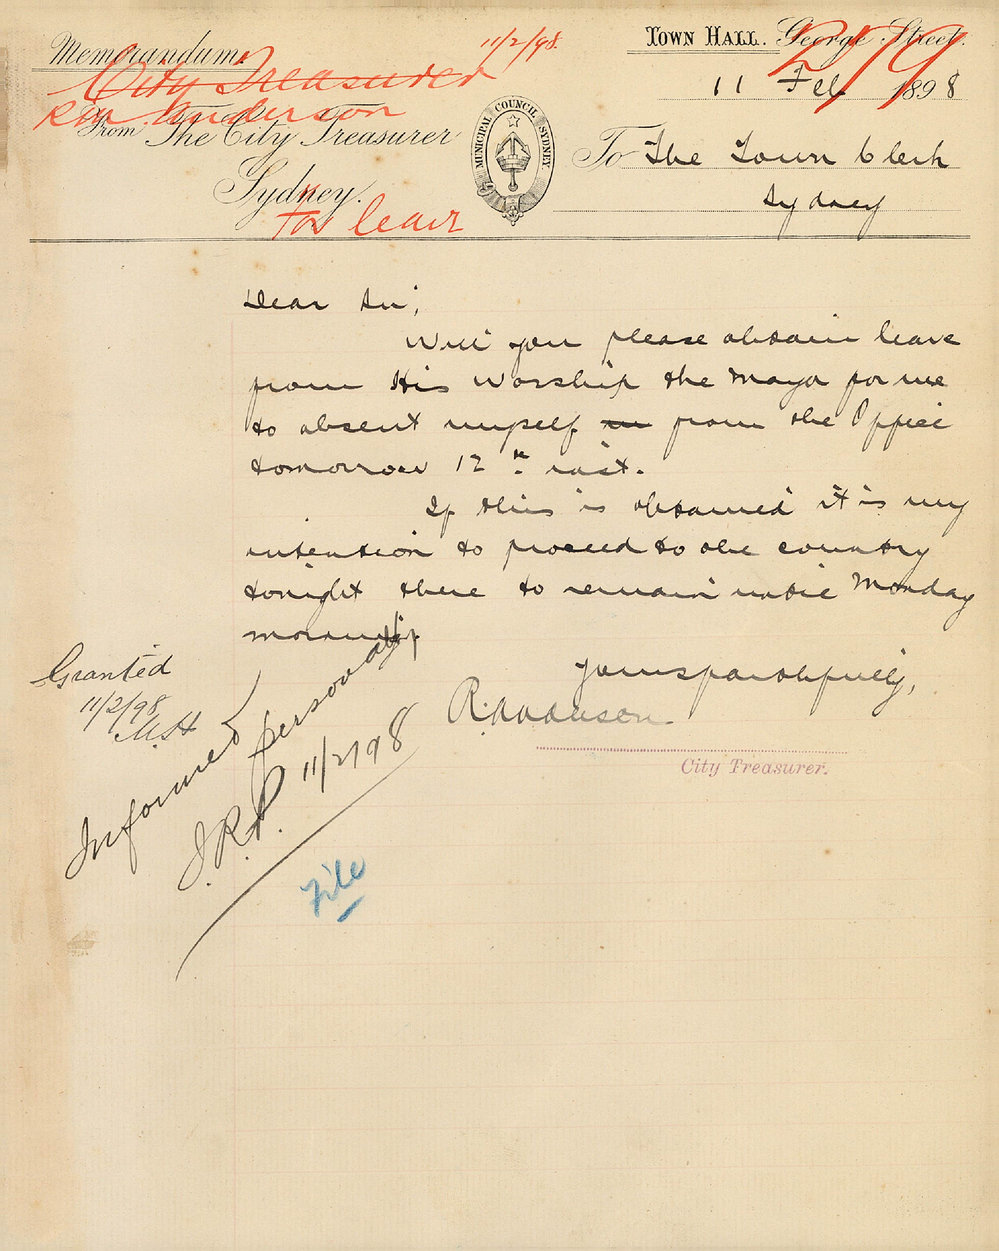 Memorandum.
11/2/98.
Town Hall. George Street.
City Treasurer
11 Feb 1898
Anderson
From The City Treasurer
Sydney.
MUNICIPAL COUNCIL SYDNEY.
To The Town Clerk
Sydney
For leave
Dear Sir;
Will you please obtain leave
from His Worship the Mayor for me
to absent myself from the Office
tomorrow 12th inst.
If this is obtained it is my
intention to proceed to the country
tonight there to remain until Monday
morning.
Yours faithfully,
R. Anderson
City Treasurer.
Granted
11/2/98
Informed personally
11/2/98
File